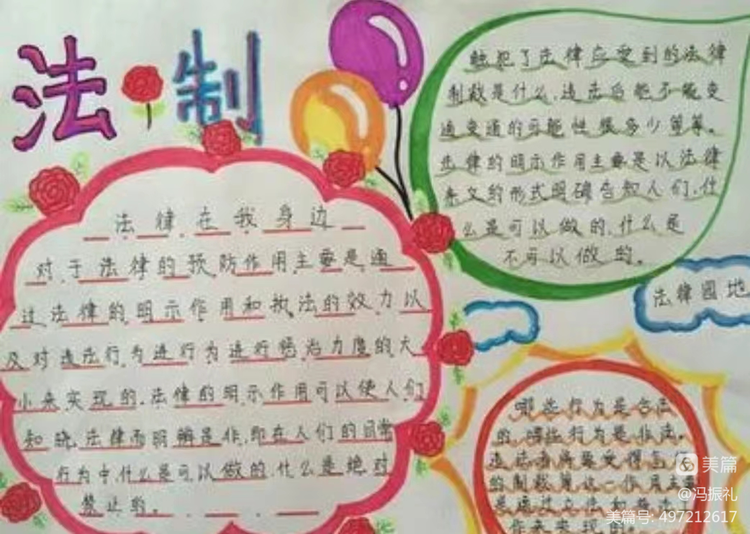 法制
法律在我身边
对于法律的预防作用主要是通
过法律的明示作用和执法的效力以
及对违法行为进行为进行惩治力度的大
小来实现的.法律的明示作用可以使人们
知晓法律而明辨是非,即在人们的日常
行为中什么是可以做的.什么是绝对
禁止的。
触犯了法律应受到的法律
制裁是什么,违法后能不能变
通变通的可能性很多少等等。
法律的明示作用主要是以法律
条文的形式明确告知人们,什
么是可以做的,什么是
不可以做的。
法律园地
哪些行为是合法
的,哪些行为是非法。
违法者将要受得怎
的制裁等这一作用主要
是通过立法和
作来实现的。
美篇
@冯振礼
美篇号: 497212617